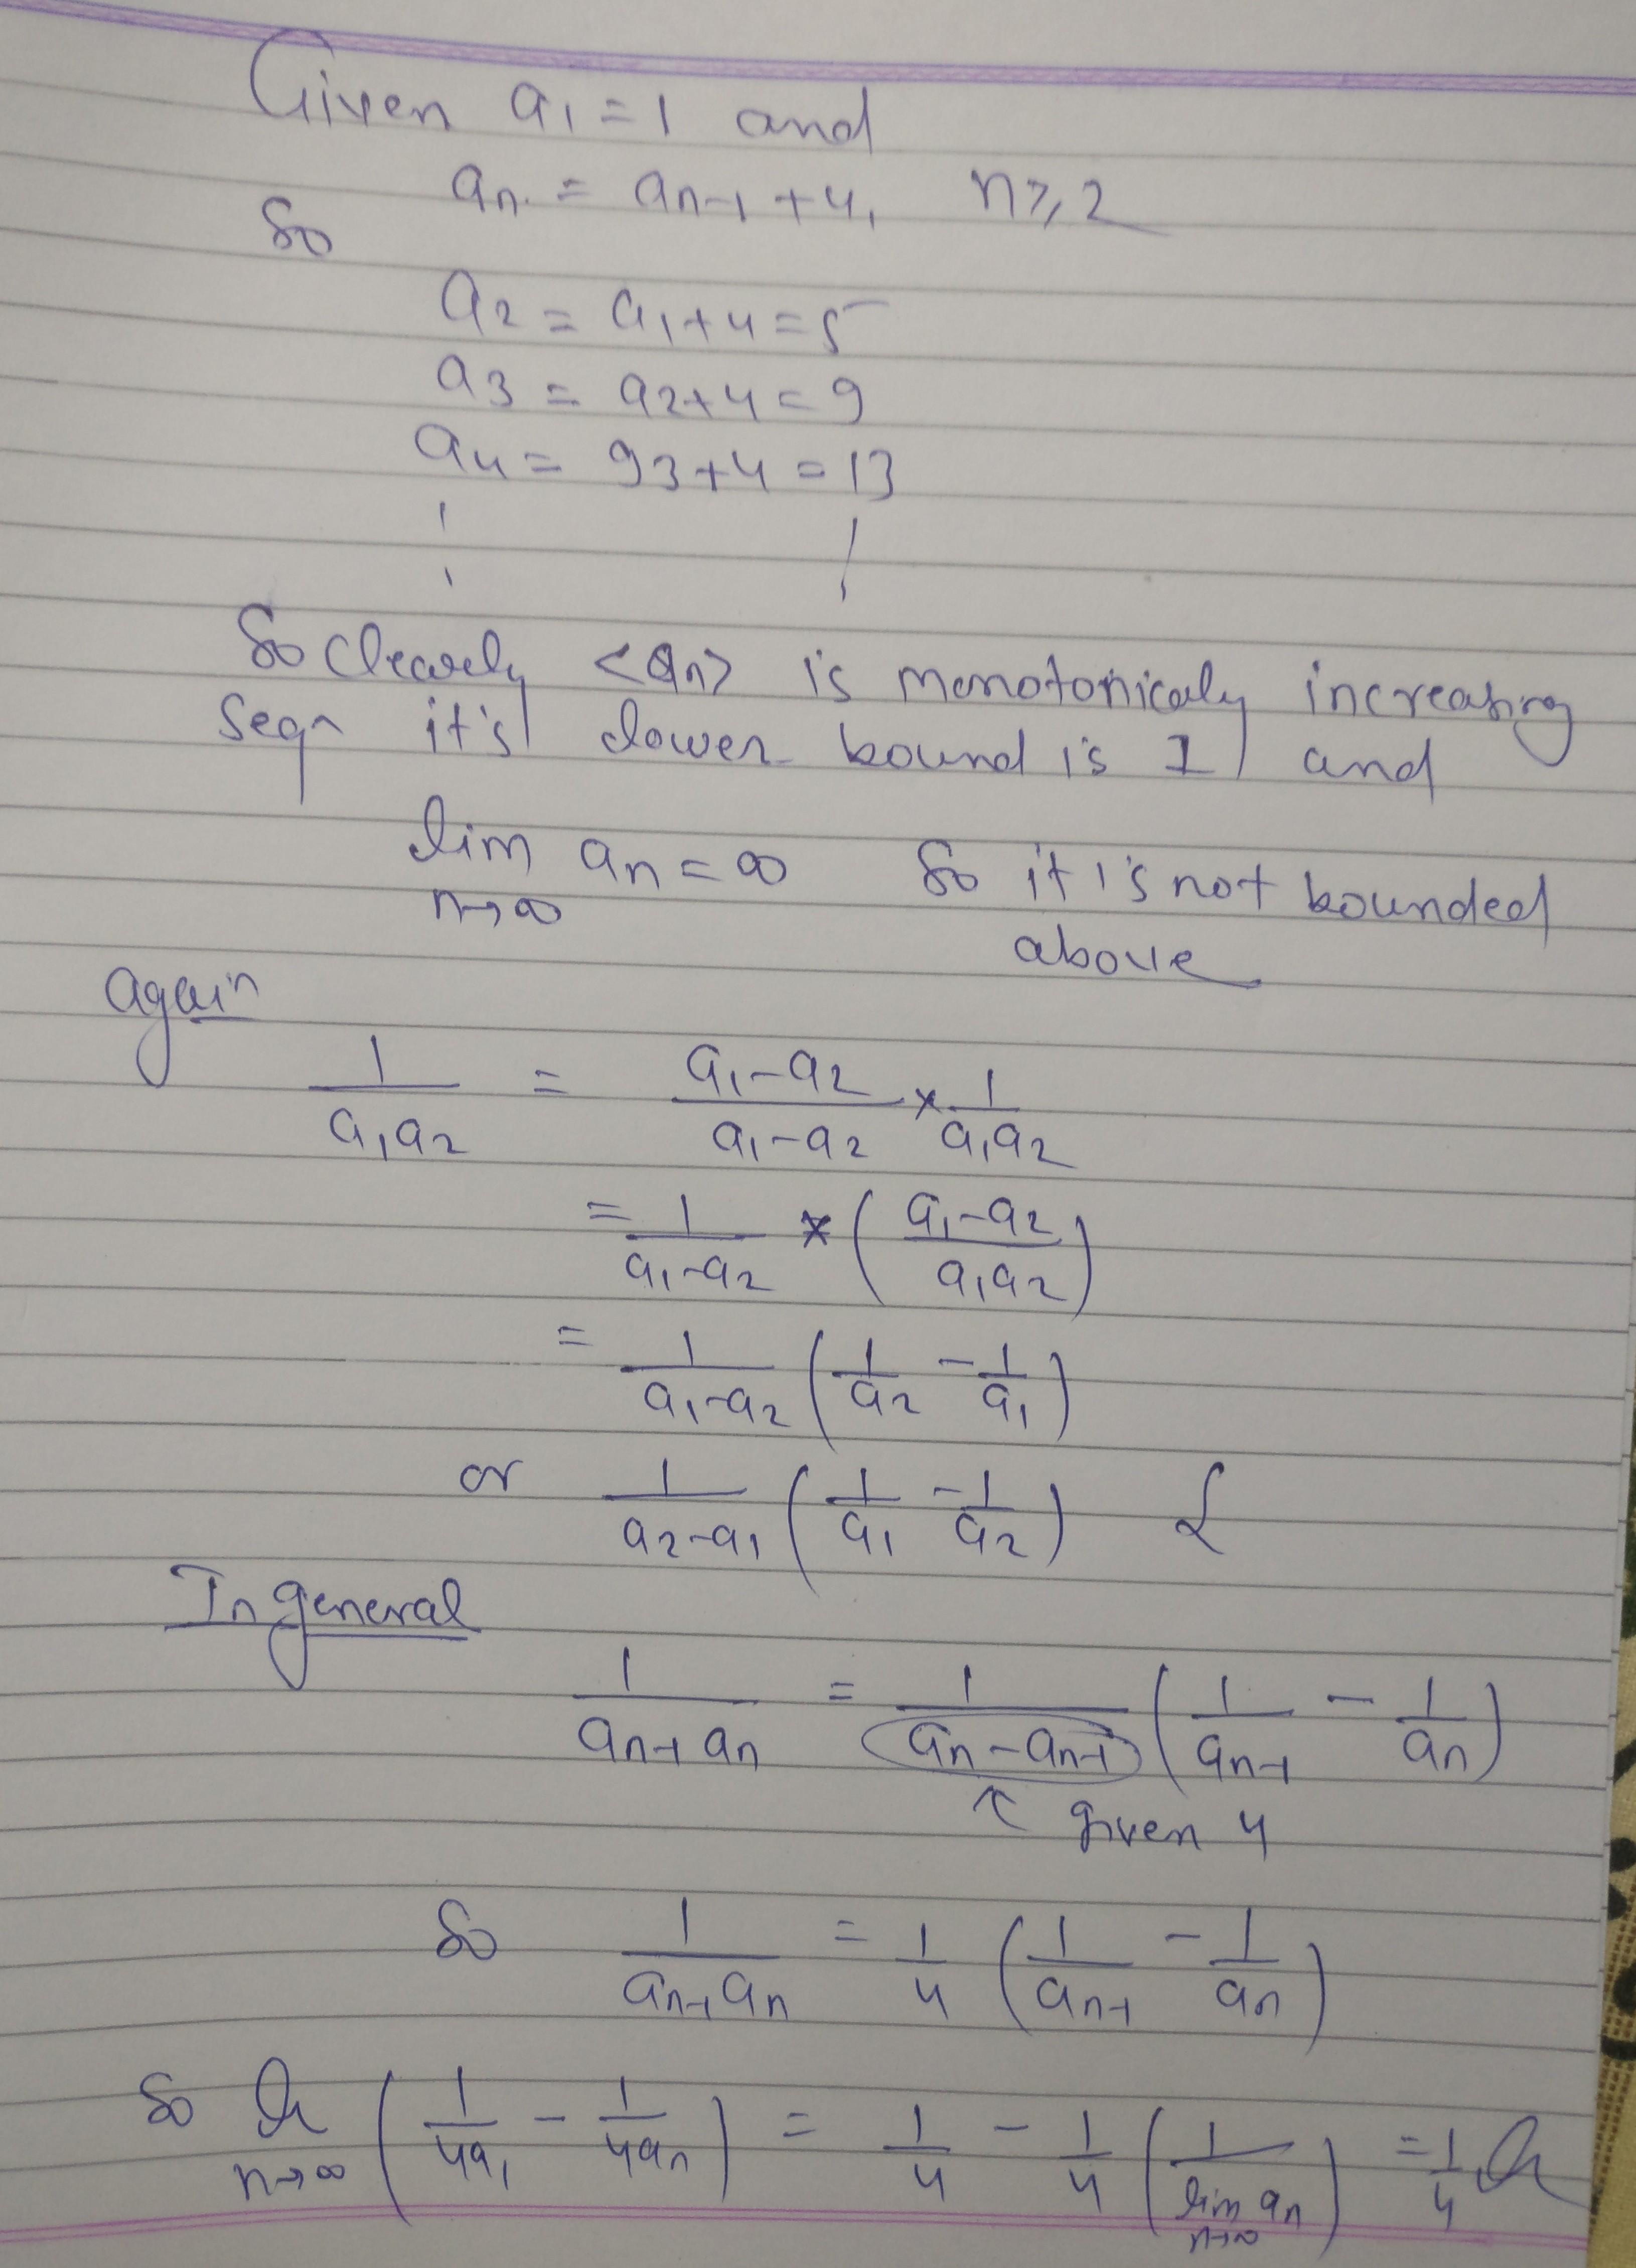 Given a₁ = 1 and
aₙ = aₙ₋₁ + 4, n ≥ 2
So
a₂ = a₁ + 4 = 5
a₃ = a₂ + 4 = 9
a₄ = a₃ + 4 = 13
So clearly <aₙ> is monotonicaly increasing
seqn it's lower bound is 1 and
lim n→∞ aₙ = ∞ So it is not bounded
above
again
1/(a₁a₂) = (a₁-a₂)/(a₁-a₂) × 1/(a₁a₂)
= 1/(a₁-a₂) * ((a₁-a₂)/(a₁a₂))
= 1/(a₁-a₂) (1/a₂ - 1/a₁)
or 1/(a₂-a₁) (1/a₁ - 1/a₂)
In general
1/(aₙ₋₁aₙ) = 1/(aₙ-aₙ₋₁) (1/aₙ₋₁ - 1/aₙ)
↖ given 4
So 1/(aₙ₋₁aₙ) = 1/4 (1/aₙ₋₁ - 1/aₙ)
So n→∞ (1/4a₁ - 1/4aₙ) = 1/4 - 1/4 (1/lim n→∞ aₙ) = 1/4